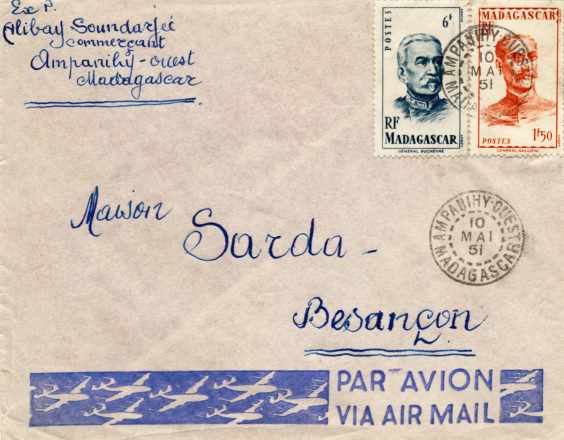 Ex P.
Alibay Soundarjee
Commerçant
Ampanihy-Ouest
Madagascar
POSTES
6F
RF
MADAGASCAR
GÉNÉRAL DUCHESNE
MADAGASCAR
POSTES
1F50
GÉNÉRAL GALLIENI
AMPANIHY-OUEST
10
MAI
51
Maison
Sarda -
Besançon
AMPANIHY-OUEST
10
MAI
51
MADAGASCAR
PAR AVION
VIA AIR MAIL